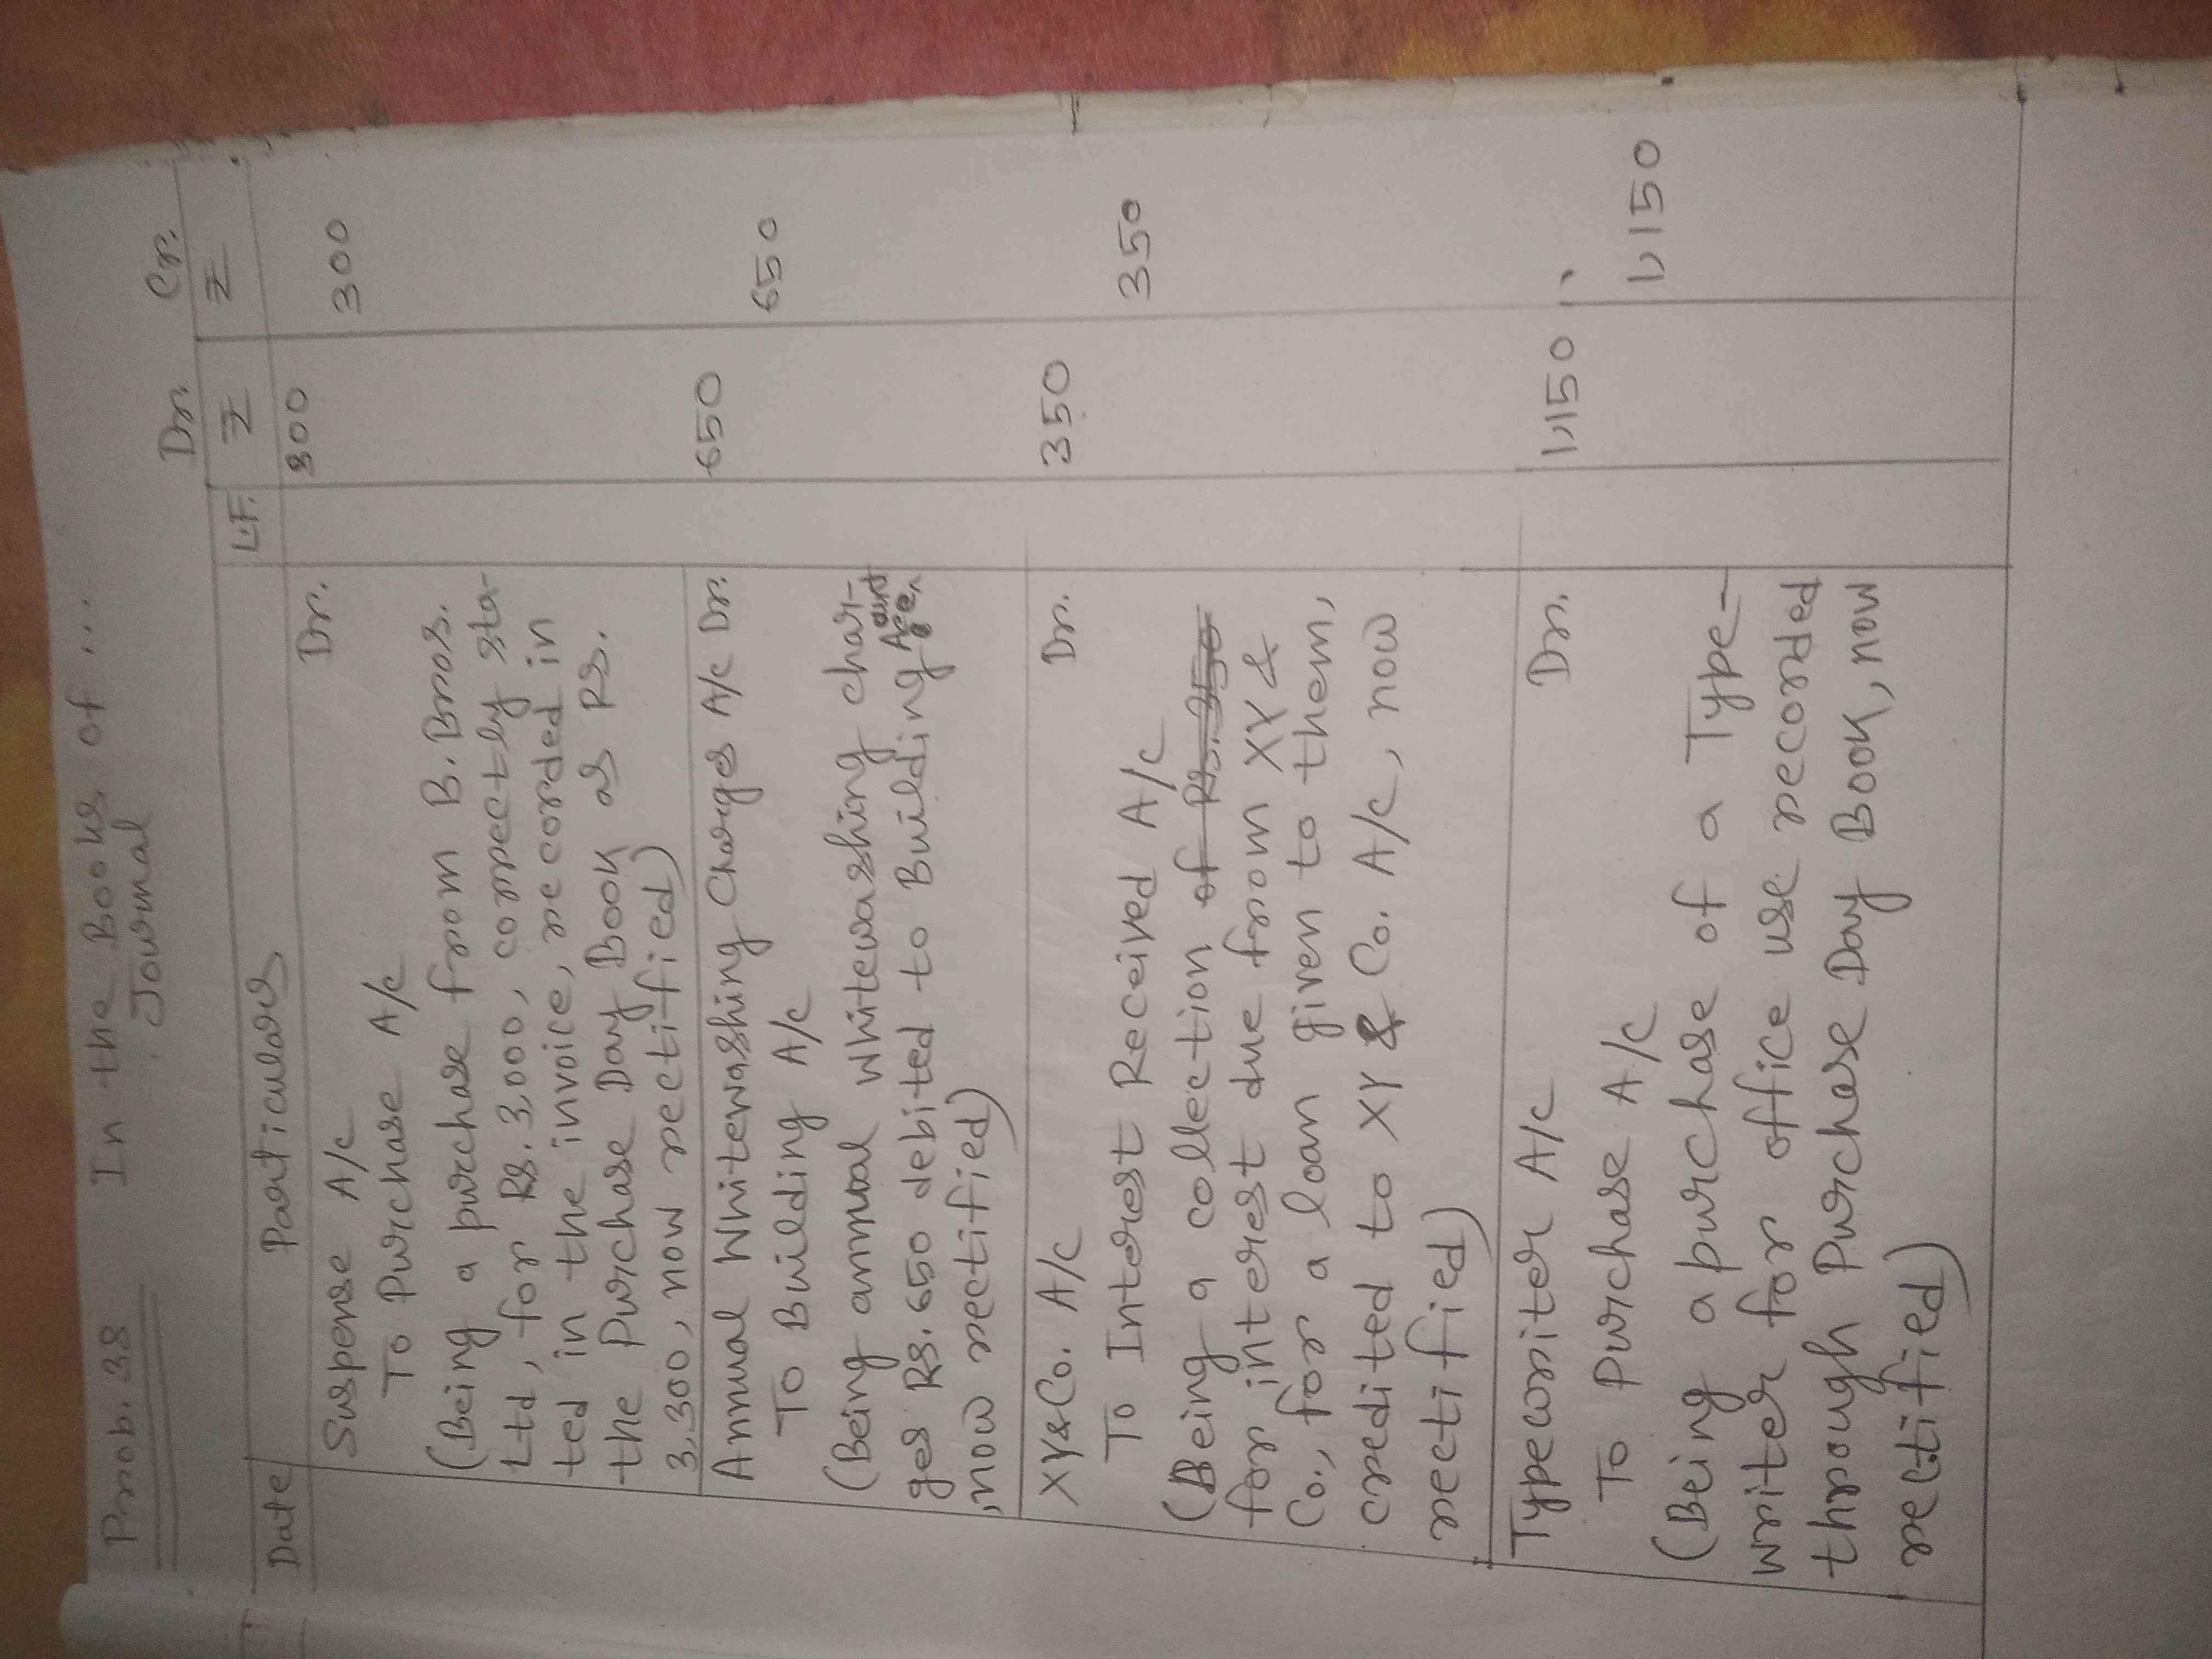 Prob. 38 In the Books of ...
Journal
Dr. Cr.
Date Particulars L.F. ₹ ₹
Suspense A/c Dr. 300
To Purchase A/c 300
(Being a purchase from B. Bros.
Ltd, for Rs. 3,000, correctly sta-
ted in the invoice, recorded in
the Purchase Day Book as Rs.
3,300, now rectified)
Annual Whitewashing Charges A/c Dr. 650
To Building A/c 650
(Being annual whitewashing char-
ges Rs. 650 debited to Building
, now rectified)
XY & Co. A/c Dr. 350
To Interest Received A/c 350
(Being a collection of Rs. 350
for interest due from XY &
Co., for a loan given to them,
credited to XY & Co. A/c, now
rectified)
Typewriter A/c Dr. 1,150
To Purchase A/c 1,150
(Being a purchase of a Type-
writer for office use recorded
through Purchase Day Book, now
rectified)